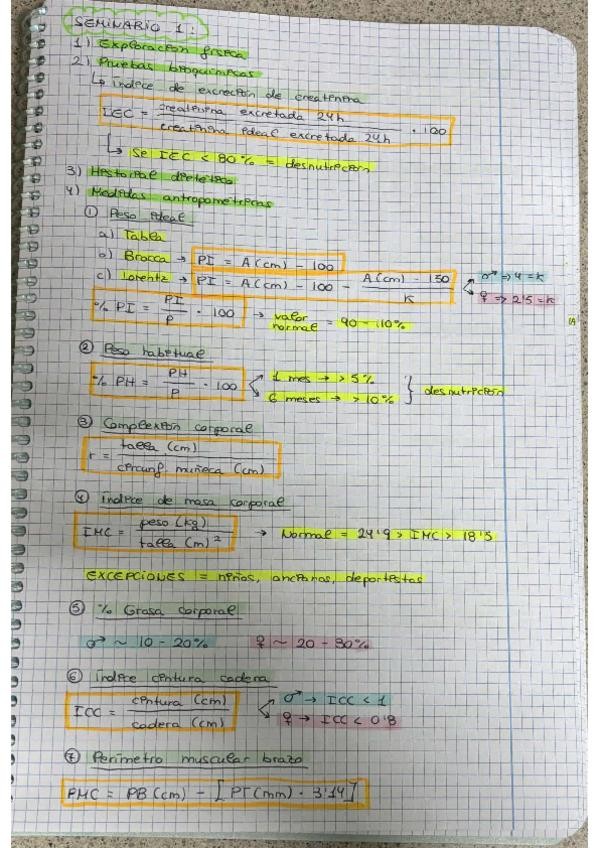 SEMINARIO 1:
1) Exploración física
2) Pruebas bioquímicas
↳ índice de excreción de creatinina
IEC = creatinina excretada 24h / creatinina ideal excretada 24h · 100
↳ Si IEC < 80% = desnutrición
3) Historial dietético
4) Medidas antropométricas
① Peso ideal
a) Tabla
b) Brocca → PI = A(cm) - 100
c) Lorentz → PI = A(cm) - 100 - A(cm) - 150 / K
♂ => 4 = K
♀ => 2'5 = K
% PI = PI / P · 100 → valor normal = 90 - 110%
② Peso habitual
% PH = PH / P · 100
1 mes → > 5%
6 meses → > 10%
} desnutrición
③ Complexión corporal
r = talla (cm) / circunf. muñeca (cm)
④ Índice de masa corporal
IMC = peso (kg) / talla (m)² → Normal = 24'9 > IMC > 18'5
EXCEPCIONES = niños, ancianos, deportistas
⑤ % Grasa corporal
♂ ~ 10 - 20% ♀ ~ 20 - 30%
⑥ Índice cintura cadera
ICC = cintura (cm) / cadera (cm)
♂ → ICC < 1
♀ → ICC < 0'8
⑦ Perímetro muscular brazo
PMC = PB (cm) - [PT (mm) · 3'14]